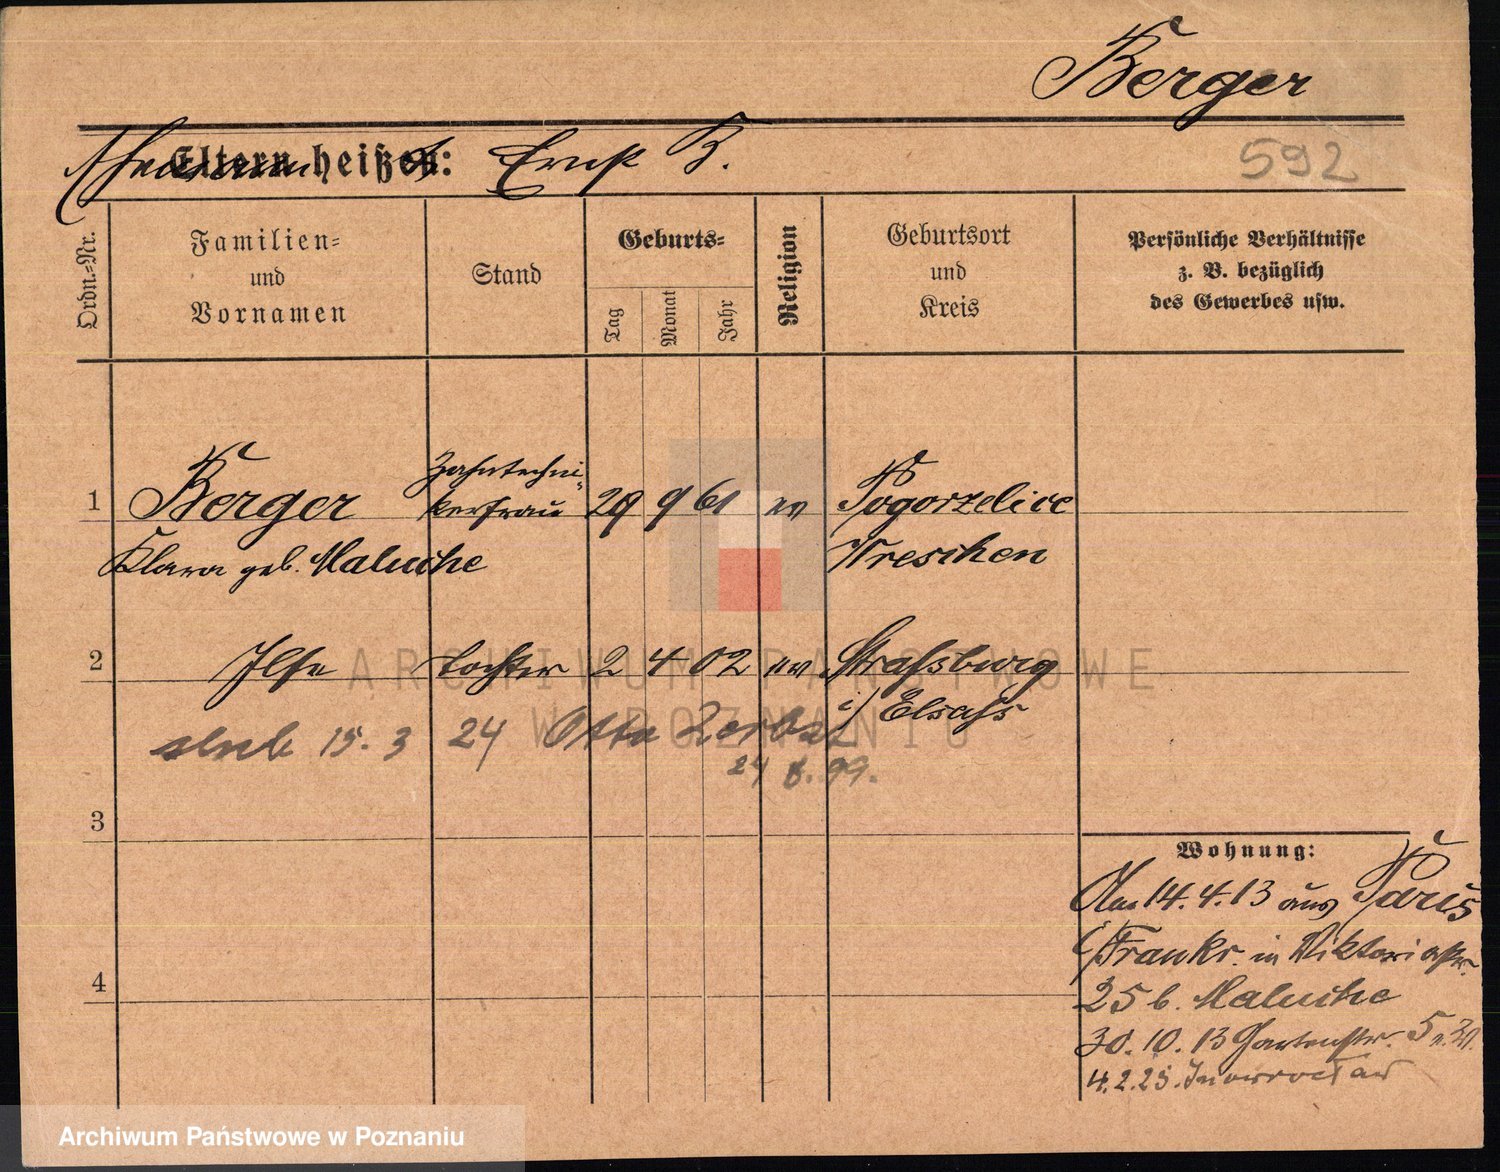 Berger
Eltern heißen: Ernst B.
592
Ordn.=Nr.
Familien=
und
Vornamen
Stand
Geburts=
Tag
Monat
Jahr
Religion
Geburtsort
und
Kreis
Persönliche Verhältnisse
z. B. bezüglich
des Gewerbes usw.
1 Berger Zahntechni-
kerfrau 29 9 61 ev Pogorzelice
Klara geb. Maluche Wreschen
2 Ilse Tochter 2 4 02 ev Strassburg
i/ Elsass
slub 15. 3 24 Otto
24 .99.
3
Wohnung:
Am 14.4.13 aus Paris
i/Frankr. in Viktoriastr.
25 b. Maluche
4
30.10.13 Gartenstr. 5
4.2.25. Inowroclaw
ARCHIWUM PAŃSTWOWE
W POZNANIU
Archiwum Państwowe w Poznaniu